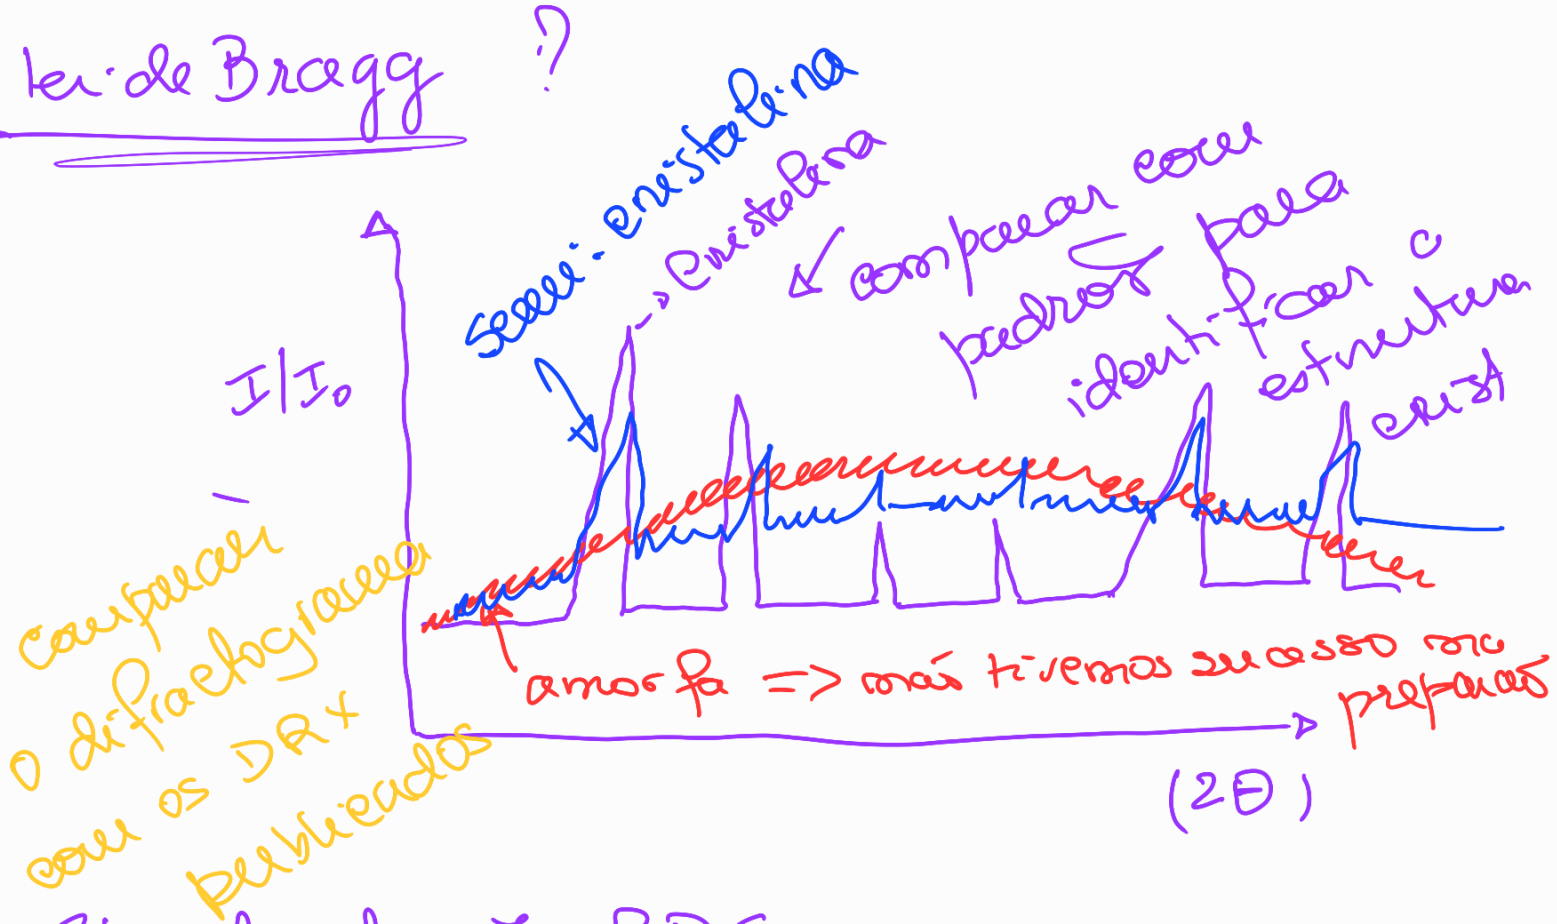 Lei de Bragg ?
semi-cristalina
cristalina
comparar com
padrão para
identificar a
estrutura
crist
I/I₀
comparar
o difractograma
com os DRX
publicados
amorfa => não tivemos sucesso na
preparação
(2θ)